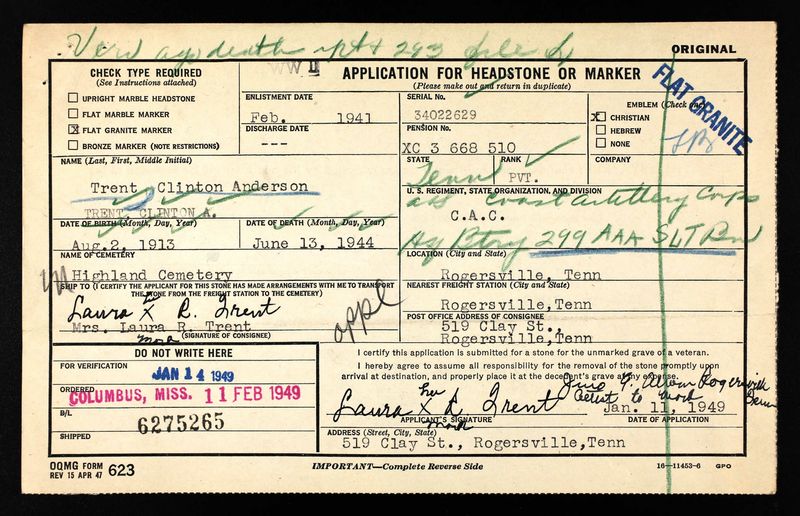 Verif ago death rpt 293 file
ORIGINAL
WW II
CHECK TYPE REQUIRED
(See Instructions attached)
UPRIGHT MARBLE HEADSTONE
FLAT MARBLE MARKER
X FLAT GRANITE MARKER
BRONZE MARKER (NOTE RESTRICTIONS)
APPLICATION FOR HEADSTONE OR MARKER
(Please make out and return in duplicate)
ENLISTMENT DATE
Feb. 1941
DISCHARGE DATE
---
SERIAL No.
34022629
PENSION No.
XC 3 668 510
EMBLEM (Check one)
X CHRISTIAN
HEBREW
NONE
FLAT GRANITE
NAME (Last, First, Middle Initial)
Trent Clinton Anderson
TRENT, CLINTON A.
STATE
Tenn
RANK
PVT.
COMPANY
U. S. REGIMENT, STATE ORGANIZATION, AND DIVISION
Coast Artillery Corps
C.A.C.
Hq Btry 299 AAA SLT Bn
DATE OF BIRTH (Month, Day, Year)
Aug.2, 1913
DATE OF DEATH (Month, Day, Year)
June 13, 1944
NAME OF CEMETERY
Highland Cemetery
LOCATION (City and State)
Rogersville, Tenn
SHIP TO (I CERTIFY THE APPLICANT FOR THIS STONE HAS MADE ARRANGEMENTS WITH ME TO TRANSPORT
THE STONE FROM THE FREIGHT STATION TO THE CEMETERY)
her
Laura X R. Trent
Mrs. Laura R. Trent
mark
(SIGNATURE OF CONSIGNEE)
appl
NEAREST FREIGHT STATION (City and State)
Rogersville,Tenn
POST OFFICE ADDRESS OF CONSIGNEE
519 Clay St.,
Rogersville,Tenn
DO NOT WRITE HERE
FOR VERIFICATION
JAN 14 1949
ORDERED
COLUMBUS, MISS. 11 FEB 1949
B/L
6275265
SHIPPED
I certify this application is submitted for a stone for the unmarked grave of a veteran.
I hereby agree to assume all responsibility for the removal of the stone promptly upon
arrival at destination, and properly place it at the decedent's grave at my expense.
her
Laura X R. Trent
mark
Rogersville
to mark
Jan. 11, 1949
APPLICANT'S SIGNATURE
DATE OF APPLICATION
ADDRESS (Street, City, State)
519 Clay St., Rogersville,Tenn
OQMG FORM 623
REV 15 APR 47
IMPORTANT—Complete Reverse Side
16—11453-6 GPO